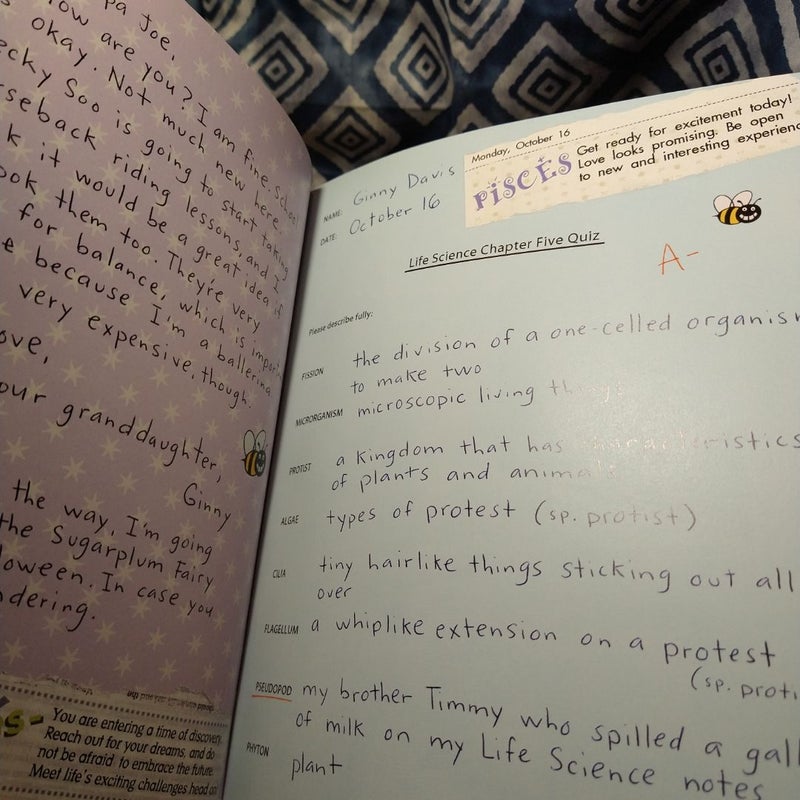 pa Joe,
How are you? I am fine. School
okay. Not much new here.
ecky Soo is going to start taking
rseback riding lessons, and I
k it would be a great idea if
ook them too. They're very
for balance, which is import
e because I'm a ballerina.
very expensive, though.
ove,
our granddaughter,
Ginny
the way, I'm going
the Sugarplum Fairy
loween. In case you
ndering.
You are entering a time of discovery.
Reach out for your dreams, and do
not be afraid to embrace the future.
Meet life's exciting challenges head on
Monday, October 16
PISCES
Get ready for excitement today!
Love looks promising. Be open
to new and interesting experienc
NAME: Ginny Davis
DATE: October 16
Life Science Chapter Five Quiz
A-
Please describe fully:
FISSION the division of a one-celled organism
to make two
MICRORGANISM microscopic living things
PROTIST a kingdom that has characteristics
of plants and animals
ALGAE types of protest (sp. protist)
CILIA tiny hairlike things sticking out all
over
FLAGELLUM a whiplike extension on a protest
(sp. proti
PSEUDOPOD my brother Timmy who spilled a gall
of milk on my Life Science notes
PHYTON plant